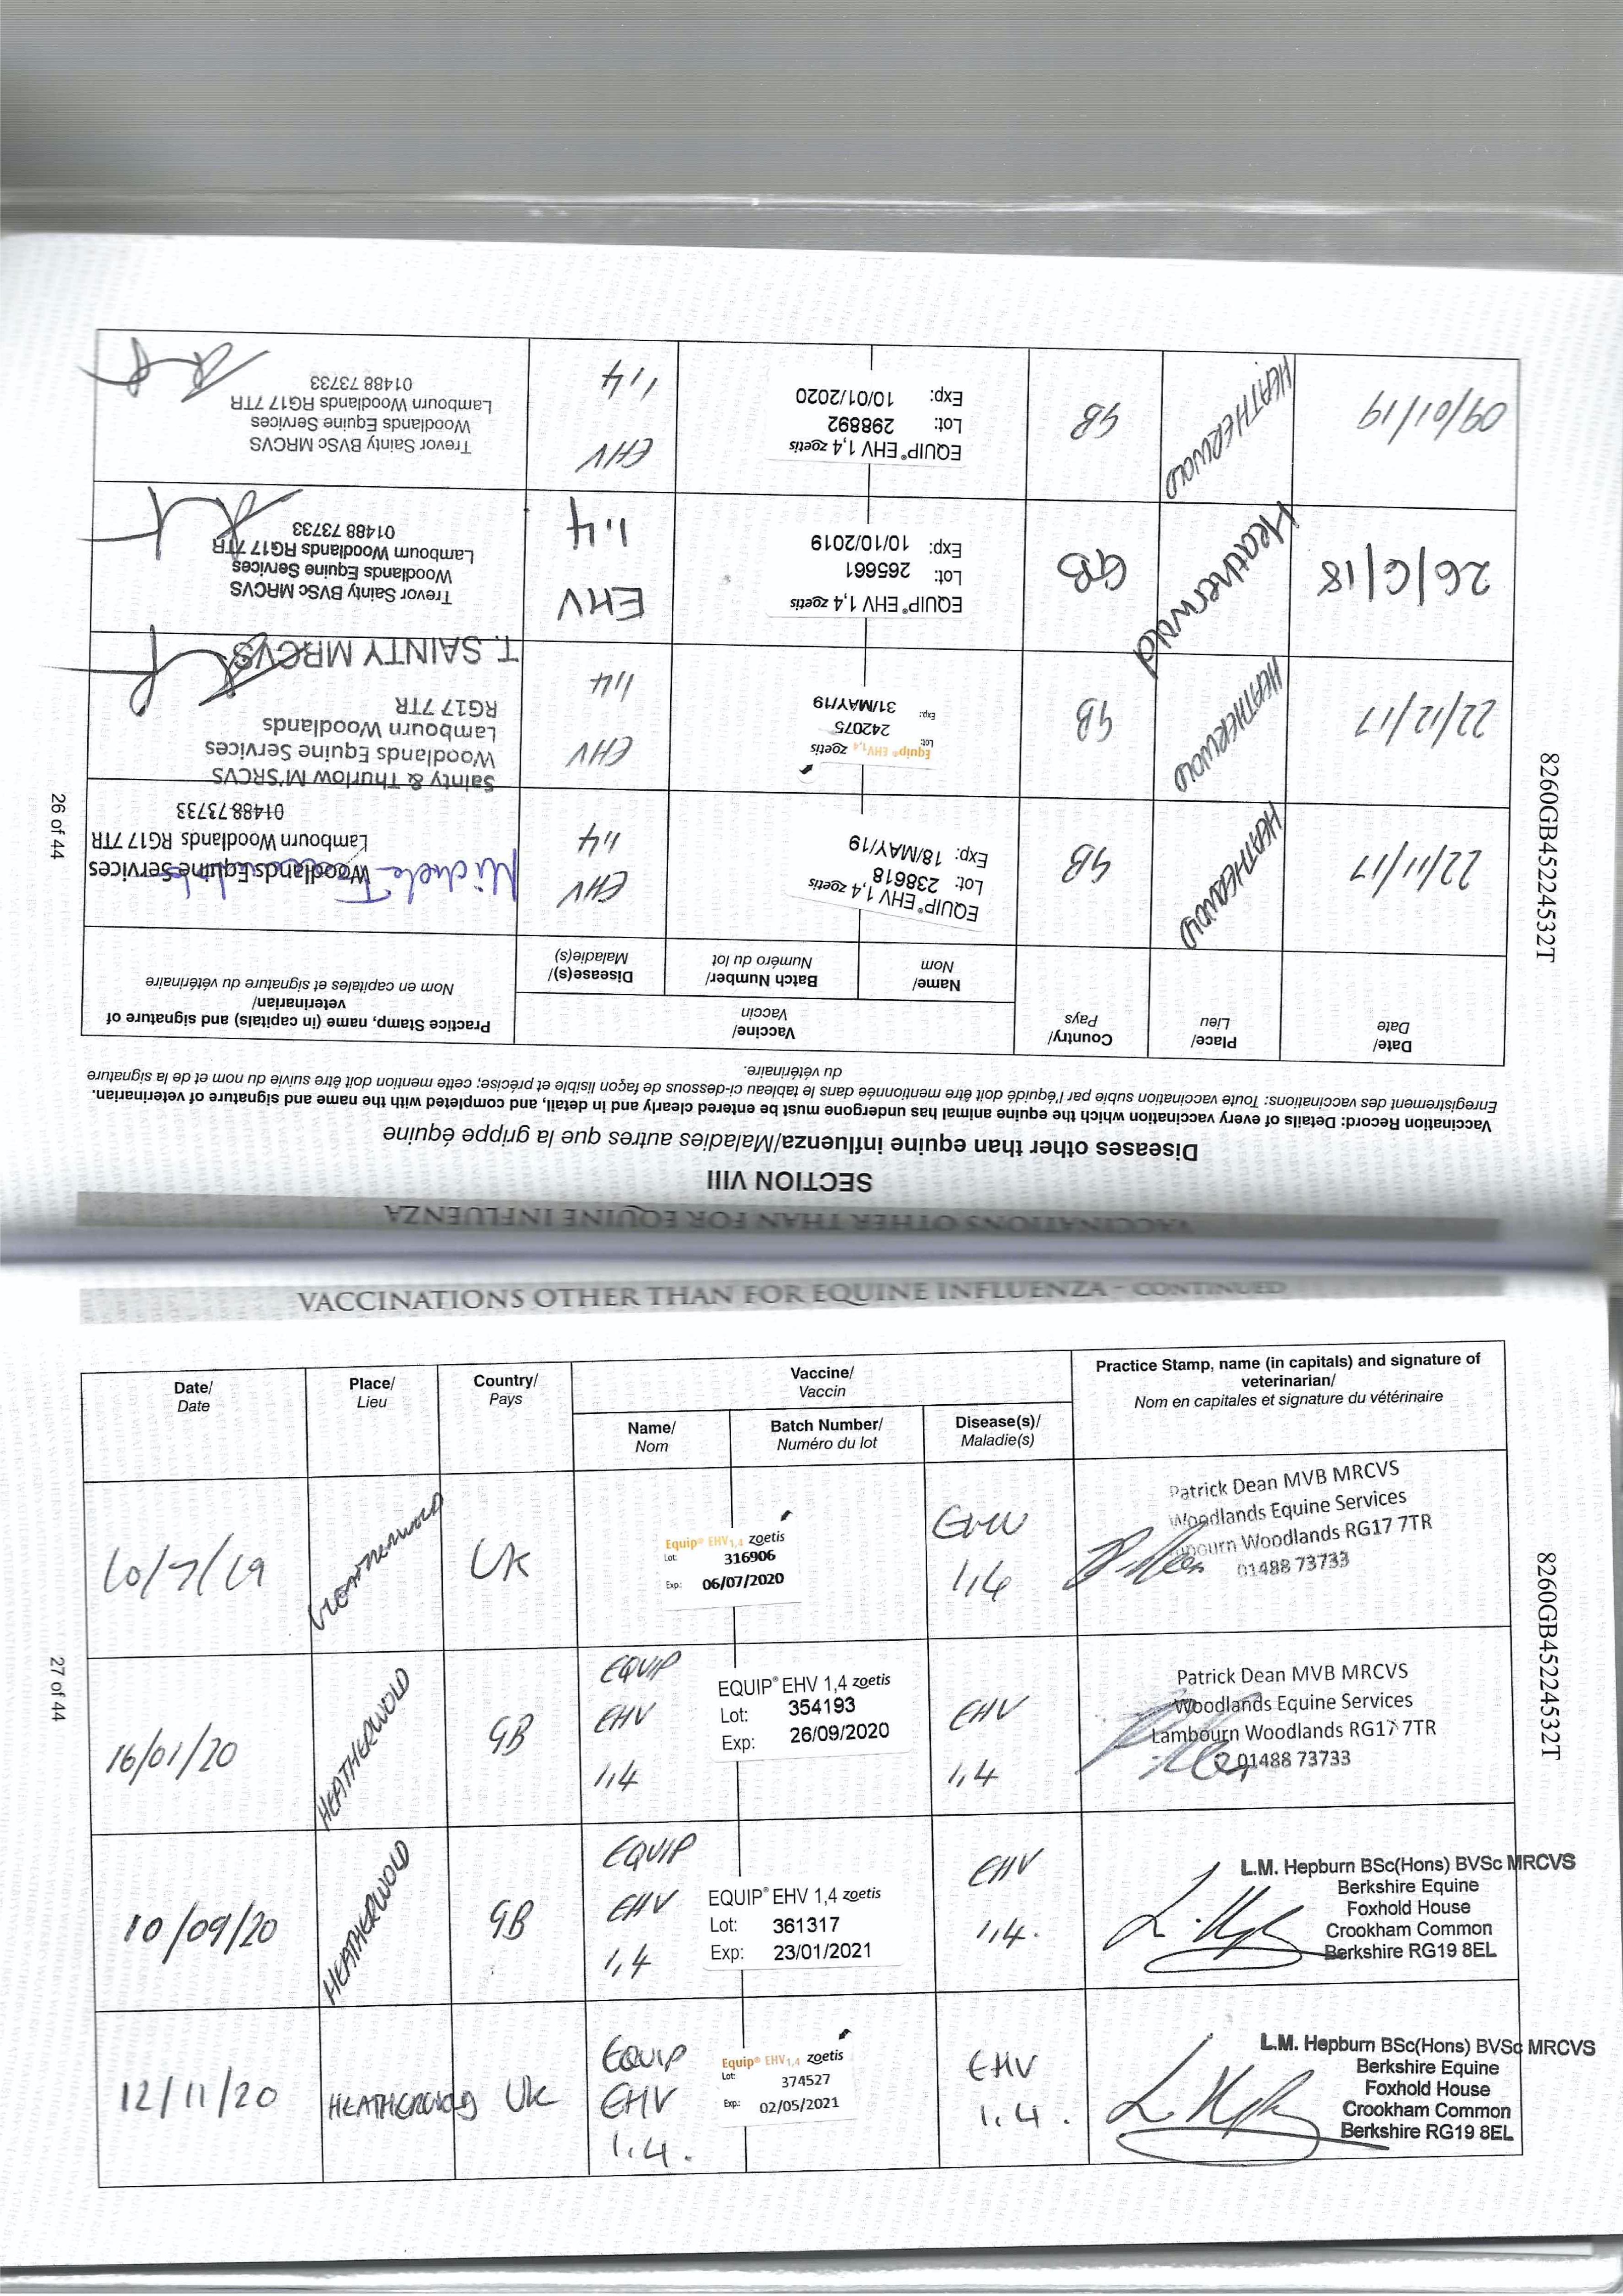 VACCINATIONS OTHER THAN FOR EQUINE INFLUENZA
SECTION VIII
Diseases other than equine influenza/Maladies autres que la grippe équine
Vaccination Record: Details of every vaccination which the equine animal has undergone must be entered clearly and in detail, and completed with the name and signature of veterinarian.
Enregistrement des vaccinations: Toute vaccination subie par l'équidé doit être mentionnée dans le tableau ci-dessous de façon lisible et précise; cette mention doit être suivie du nom et de la signature
du vétérinaire.
Date/
Date
Place/
Lieu
Country/
Pays
Vaccine/
Vaccin
Name/
Nom
Batch Number/
Numéro du lot
Disease(s)/
Maladie(s)
Practice Stamp, name (in capitals) and signature of
veterinarian/
Nom en capitales et signature du vétérinaire
22/11/17
HEATHERWOLD
GB
EQUIP® EHV 1,4 zoetis
Lot: 238618
Exp: 18/MAY/19
EHV
1,4
Woodlands Equine Services
Lambourn Woodlands RG17 7TR
01488 73733
22/12/17
HEATHERWOLD
GB
Equip® EHV1,4 zoetis
Lot: 242075
Exp: 31/MAY/19
EHV
1,4
Sainty & Thurlow M'SRCVS
Woodlands Equine Services
Lambourn Woodlands
RG17 7TR
T. SAINTY MRCVS
26/6/18
Heatherwold
GB
EQUIP® EHV 1,4 zoetis
Lot: 265661
Exp: 10/10/2019
EHV
1,4
Trevor Sainty BVSc MRCVS
Woodlands Equine Services
Lambourn Woodlands RG17 7TR
01488 73733
09/01/19
HEATHERWOLD
GB
EQUIP® EHV 1,4 zoetis
Lot: 298892
Exp: 10/01/2020
EHV
1,4
Trevor Sainty BVSc MRCVS
Woodlands Equine Services
Lambourn Woodlands RG17 7TR
01488 73733
26 of 44
8260GB45224532T
VACCINATIONS OTHER THAN FOR EQUINE INFLUENZA - CONTINUED
Date/
Date
Place/
Lieu
Country/
Pays
Vaccine/
Vaccin
Name/
Nom
Batch Number/
Numéro du lot
Disease(s)/
Maladie(s)
Practice Stamp, name (in capitals) and signature of
veterinarian/
Nom en capitales et signature du vétérinaire
10/7/19
UK
Equip® EHV1,4 zoetis
Lot: 316906
Exp: 06/07/2020
EHV
1,4
Patrick Dean MVB MRCVS
Woodlands Equine Services
Woodlands RG17 7TR
01488 73733
16/01/20
HEATHERWOLD
GB
EQUIP
EHV
1,4
EQUIP® EHV 1,4 zoetis
Lot: 354193
Exp: 26/09/2020
EHV
1,4
Patrick Dean MVB MRCVS
Woodlands Equine Services
Lambourn Woodlands RG17 7TR
01488 73733
10/09/20
HEATHERWOLD
GB
EQUIP
EHV
1,4
EQUIP® EHV 1,4 zoetis
Lot: 361317
Exp: 23/01/2021
EHV
1,4.
L.M. Hepburn BSc(Hons) BVSc MRCVS
Berkshire Equine
Foxhold House
Crookham Common
Berkshire RG19 8EL
12/11/20
HEATHERWOLD
UK
EQUIP
EHV
1,4.
Equip® EHV1,4 zoetis
Lot: 374527
Exp: 02/05/2021
EHV
1,4.
L.M. Hepburn BSc(Hons) BVSc MRCVS
Berkshire Equine
Foxhold House
Crookham Common
Berkshire RG19 8EL
27 of 44
8260GB45224532T